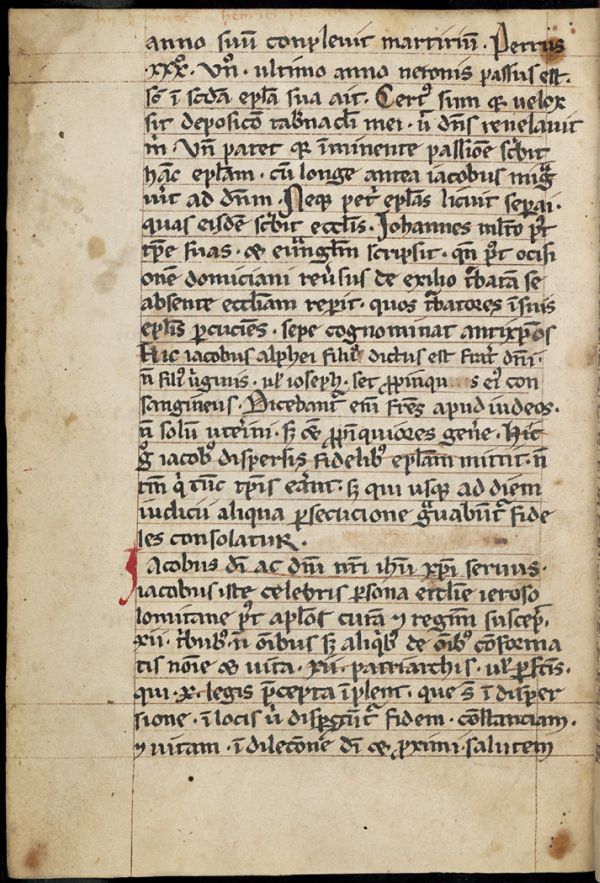 anno suū conplevit martiriū. Petrus
xxxᵒ. Vn̄. ultimo anno neronis passus est.
sc̄ ī scd̄a epl̄a sua ait. Certꝰ sum qꝫ velox
sit deposicō tab̓nacl̄i mei. ẜ dn̄s revelavit
m̓. Vn̄ patet qꝫ īminente passiōe sc̓bit
hāc epl̄am. cū longe antea iacobus mig̓
v̓it ad dn̄m. Neqꝫ pet̓ epl̄as licuit sep̲ai.
quas eisdē sc̓bit eccl̄iis. Johannes ml̄to p̓t
tp̄e suas. ⁊ euūgl̄m scripsit. qn̄ p̓t ocisi
onē domiciani rev̓sus de exilio t̓batā se
absente eccl̄iam rep̲it. quos t̓batores ī suis
epl̄is p̲cuciēs. sepe cognominat antixp̄os
Hic iacobus alphei filiꝰ dictus est frat̓ dn̄i.
n̄ filꝰ v̓ginis. vl̓ ioseph. set ꝓpinqu s eiꝰ con
sangineus. Dicebant᷑ eī fr̄es apud iudeos.
n̄ solū ut̓ini. sꝫ ⁊ ꝓp̄inquiores gen̓e. Hic
g̓ iacobꝰ dispersis fidelibꝰ epl̄am mittit. n̄
tm̄ q̓ tūc tp̄is er̄ant. sꝫ qui usqꝫ ad diem
iudicii aliqua p̲secucione g̓vabunt᷑ fide
les consolatur.
Iacobus di ac dn̄i nr̄i ih̄u xp̄i servus.
iacobus iste celebris p̲sona eccl̄ie ieroso
lomitane p̓t apl̄os curā ⁊ regim̄ suscep̓.
xii. t̓bubꝰ. n̄ oībus sꝫ aliq̓bꝰ de oībꝰ cōforma
tis noīe ⁊ vita. xii. patriarchis. vl̓ p̲fc̄is.
qui. x. legis p̄cepta īplent. que s̄ ī disper
sione. ī locis ẜ disp̲gūt᷑ fidem. constanciam.
⁊ vitam. ī dilecōne di ⁊ ꝓximi. salutem